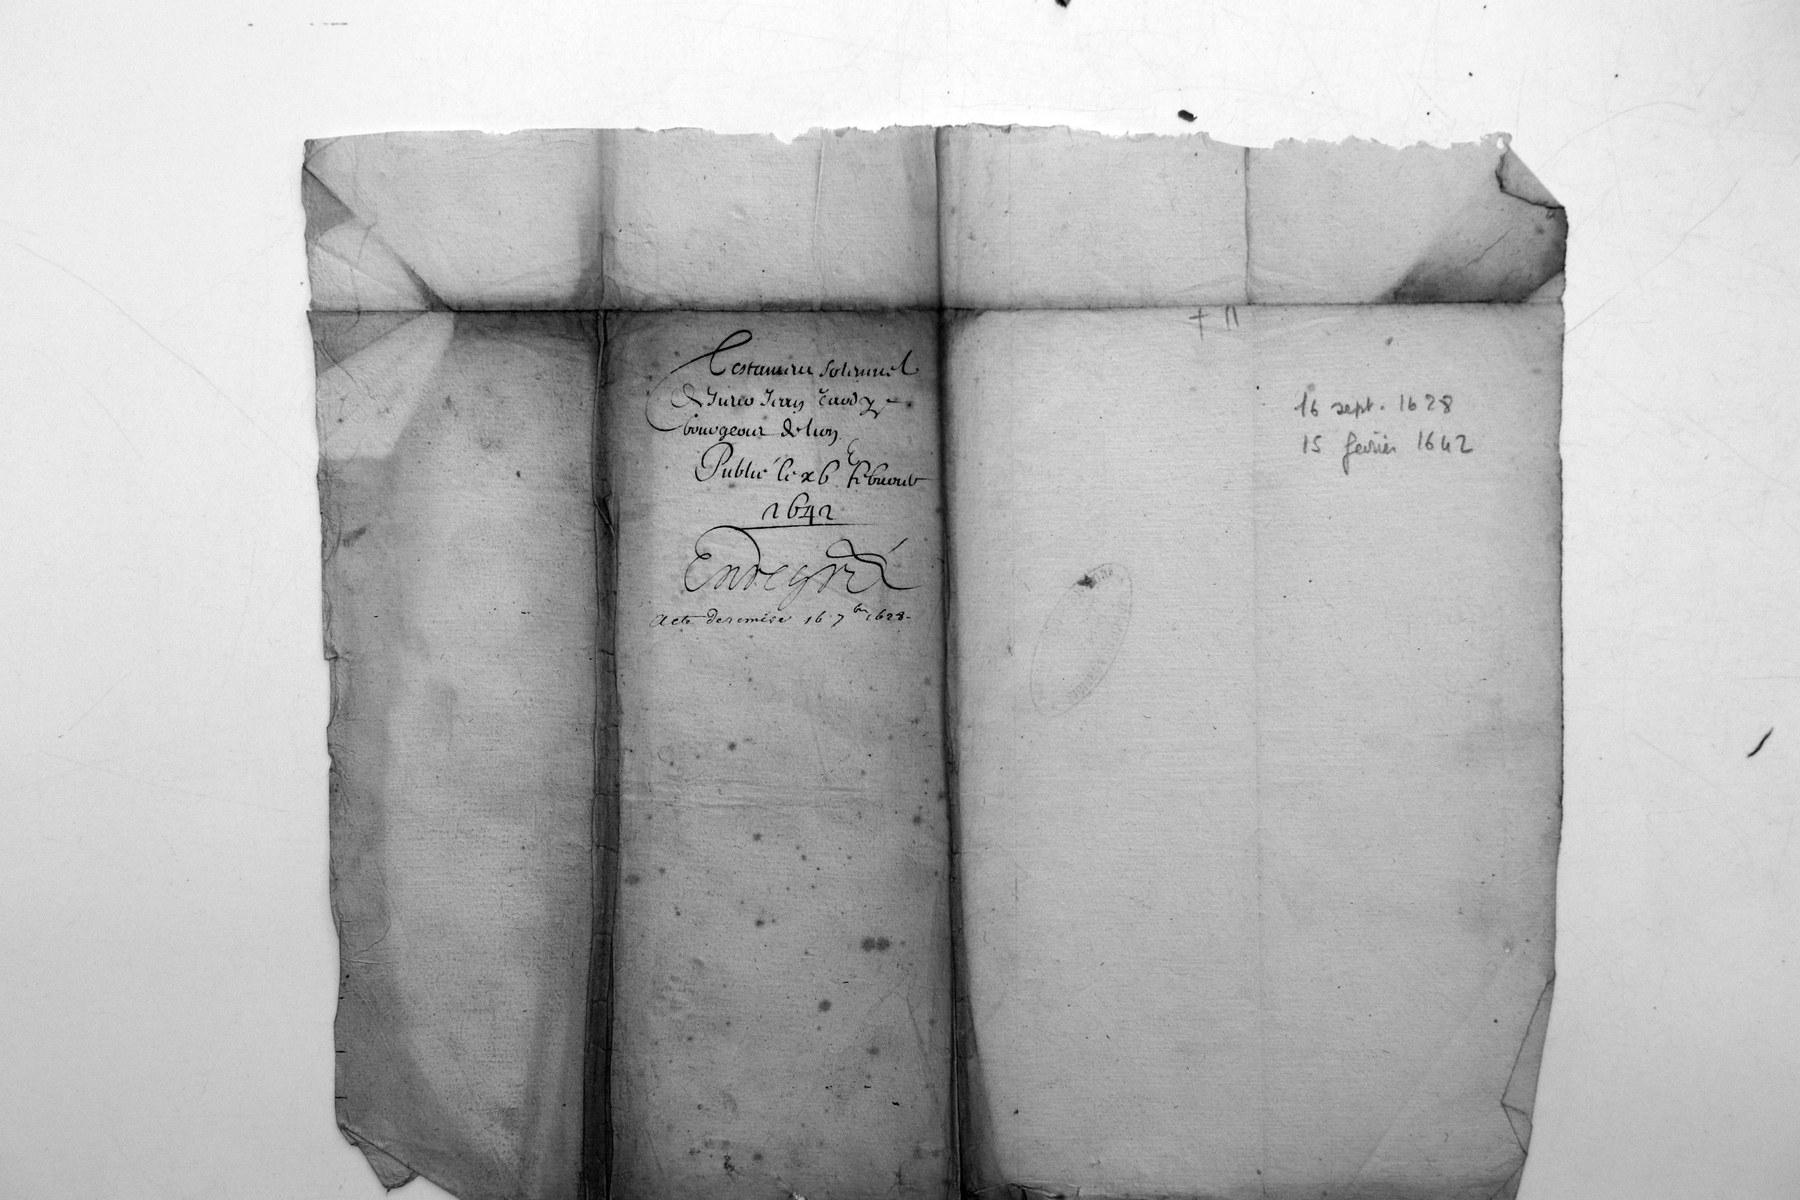 Testament solennel
de
bourgeois de lion
Publié le x6 febvrier
1642
Enregré
Acte de remise 16 7bre 1628.
16 sept. 1628
15 fevrier 1642